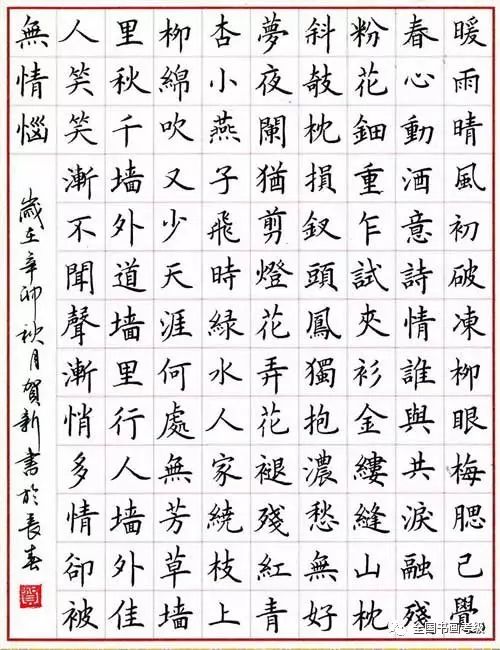 暖雨晴風初破凍柳眼梅腮已覺
春心動酒意詩情誰與共淚融殘
粉花鈿重乍試夾衫金縷縫山枕
斜敧枕損釵頭鳳獨抱濃愁無好
夢夜闌猶剪燈花弄花褪殘紅青
杏小燕子飛時綠水人家繞枝上
柳綿吹又少天涯何處無芳草墙
里秋千墙外道墙里行人墙外佳
人笑笑漸不聞聲漸悄多情卻被
無情惱
歲在辛卯秋月賀新書於長春
全国书画考级